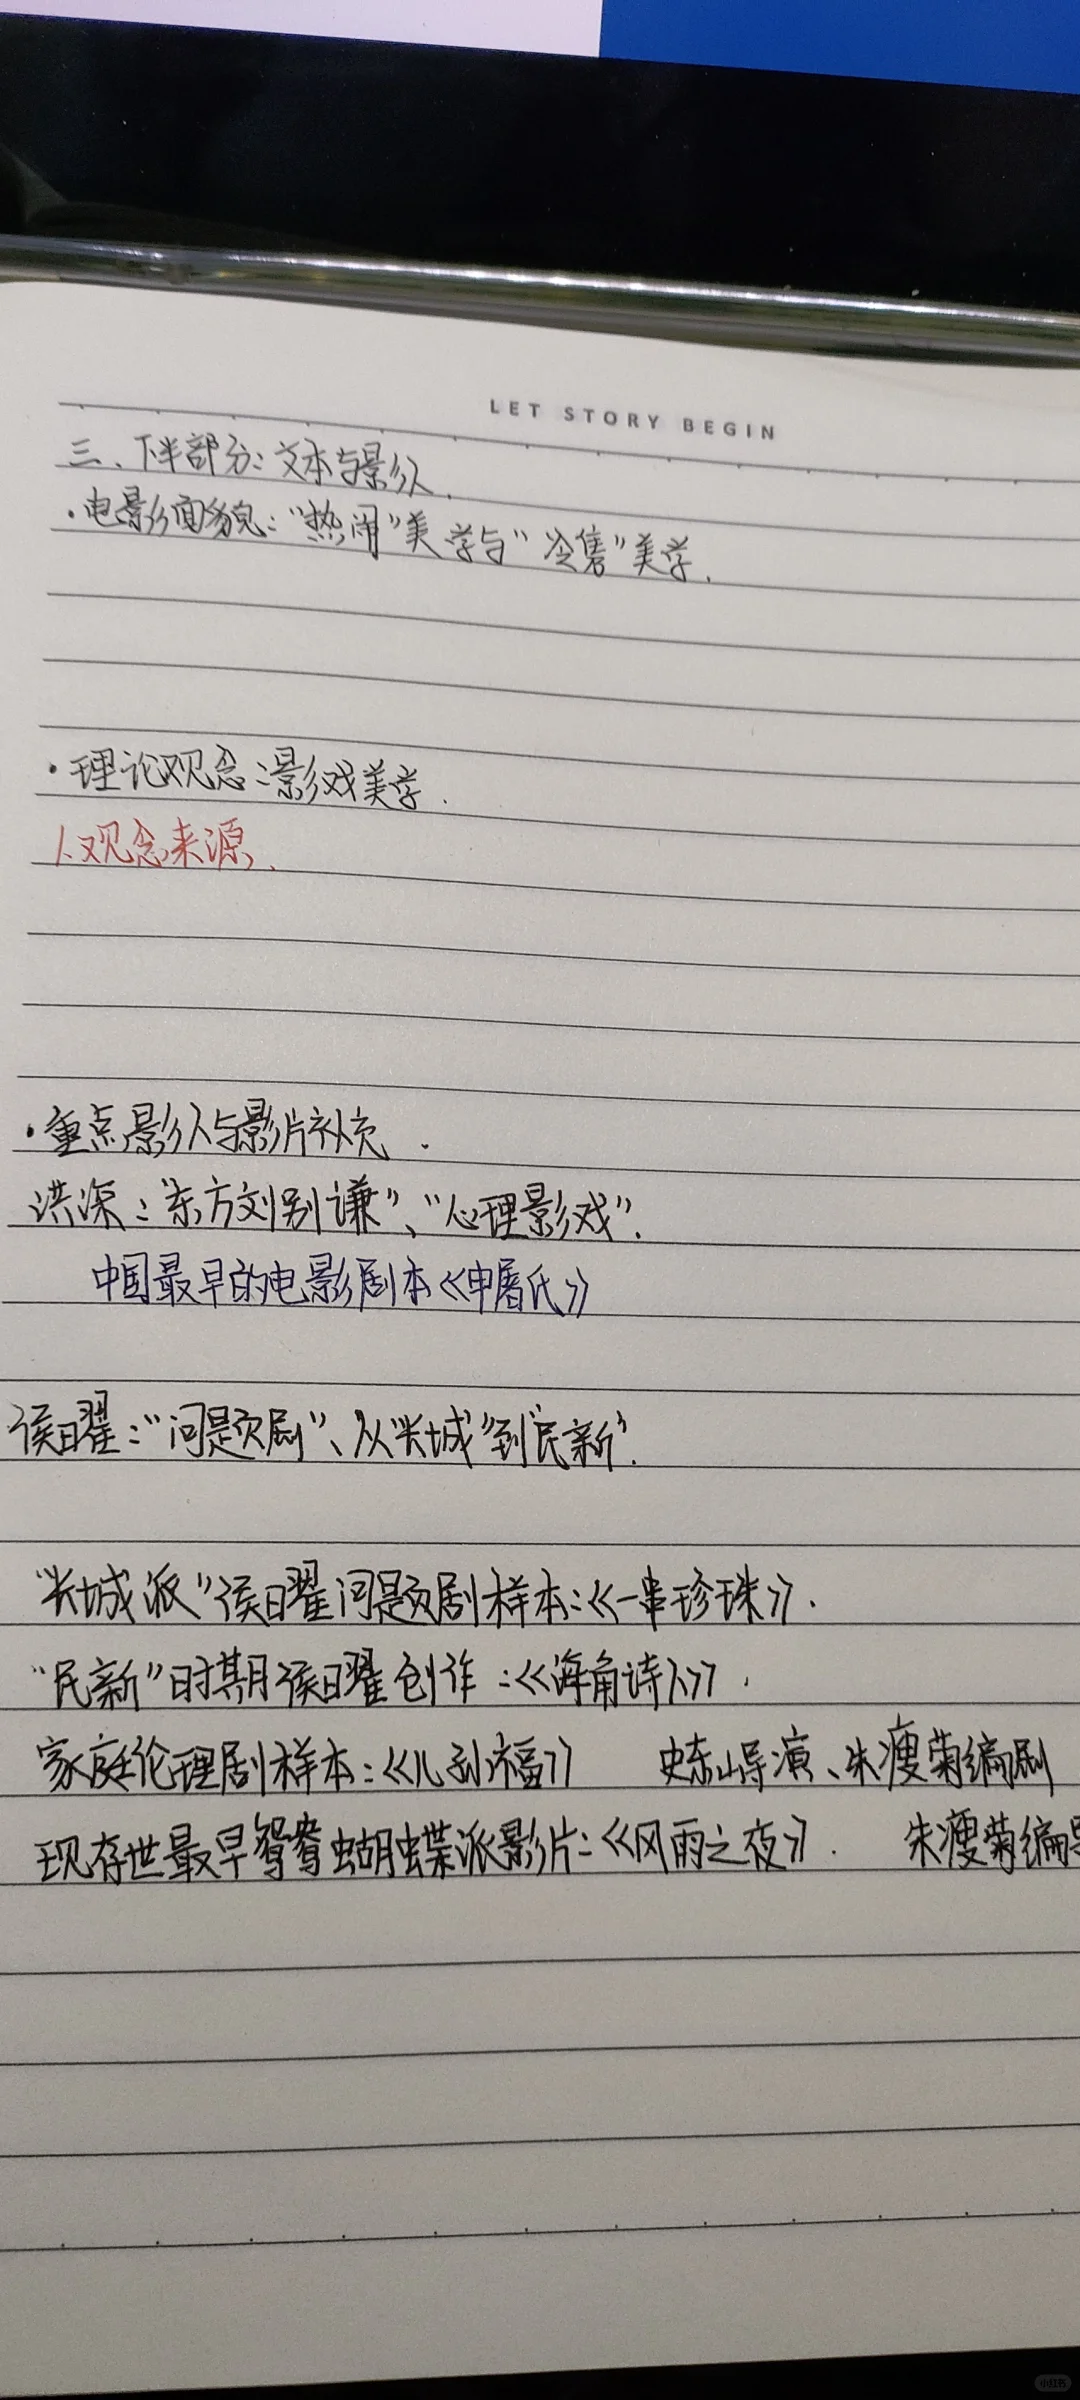 LET STORY BEGIN
三、下半部分:文本与影人.
·电影面貌:“热闹”美学与“冷隽”美学.
·理论观念:影戏美学.
1.观念来源.
·重点影人与影片补充.
洪深:“东方刘别谦”、“心理影戏”.
中国最早的电影剧本《申屠氏》
侯曜:“问题剧”、从“长城”到“民新”.
“长城派”侯曜问题剧样本:《一串珍珠》.
“民新”时期侯曜创作:《海角诗人》.
家庭伦理剧样本:《儿孙福》 史东山导演、朱瘦菊编剧
现存世最早鸳鸯蝴蝶派影片:《风雨之夜》. 朱瘦菊编导
小红书